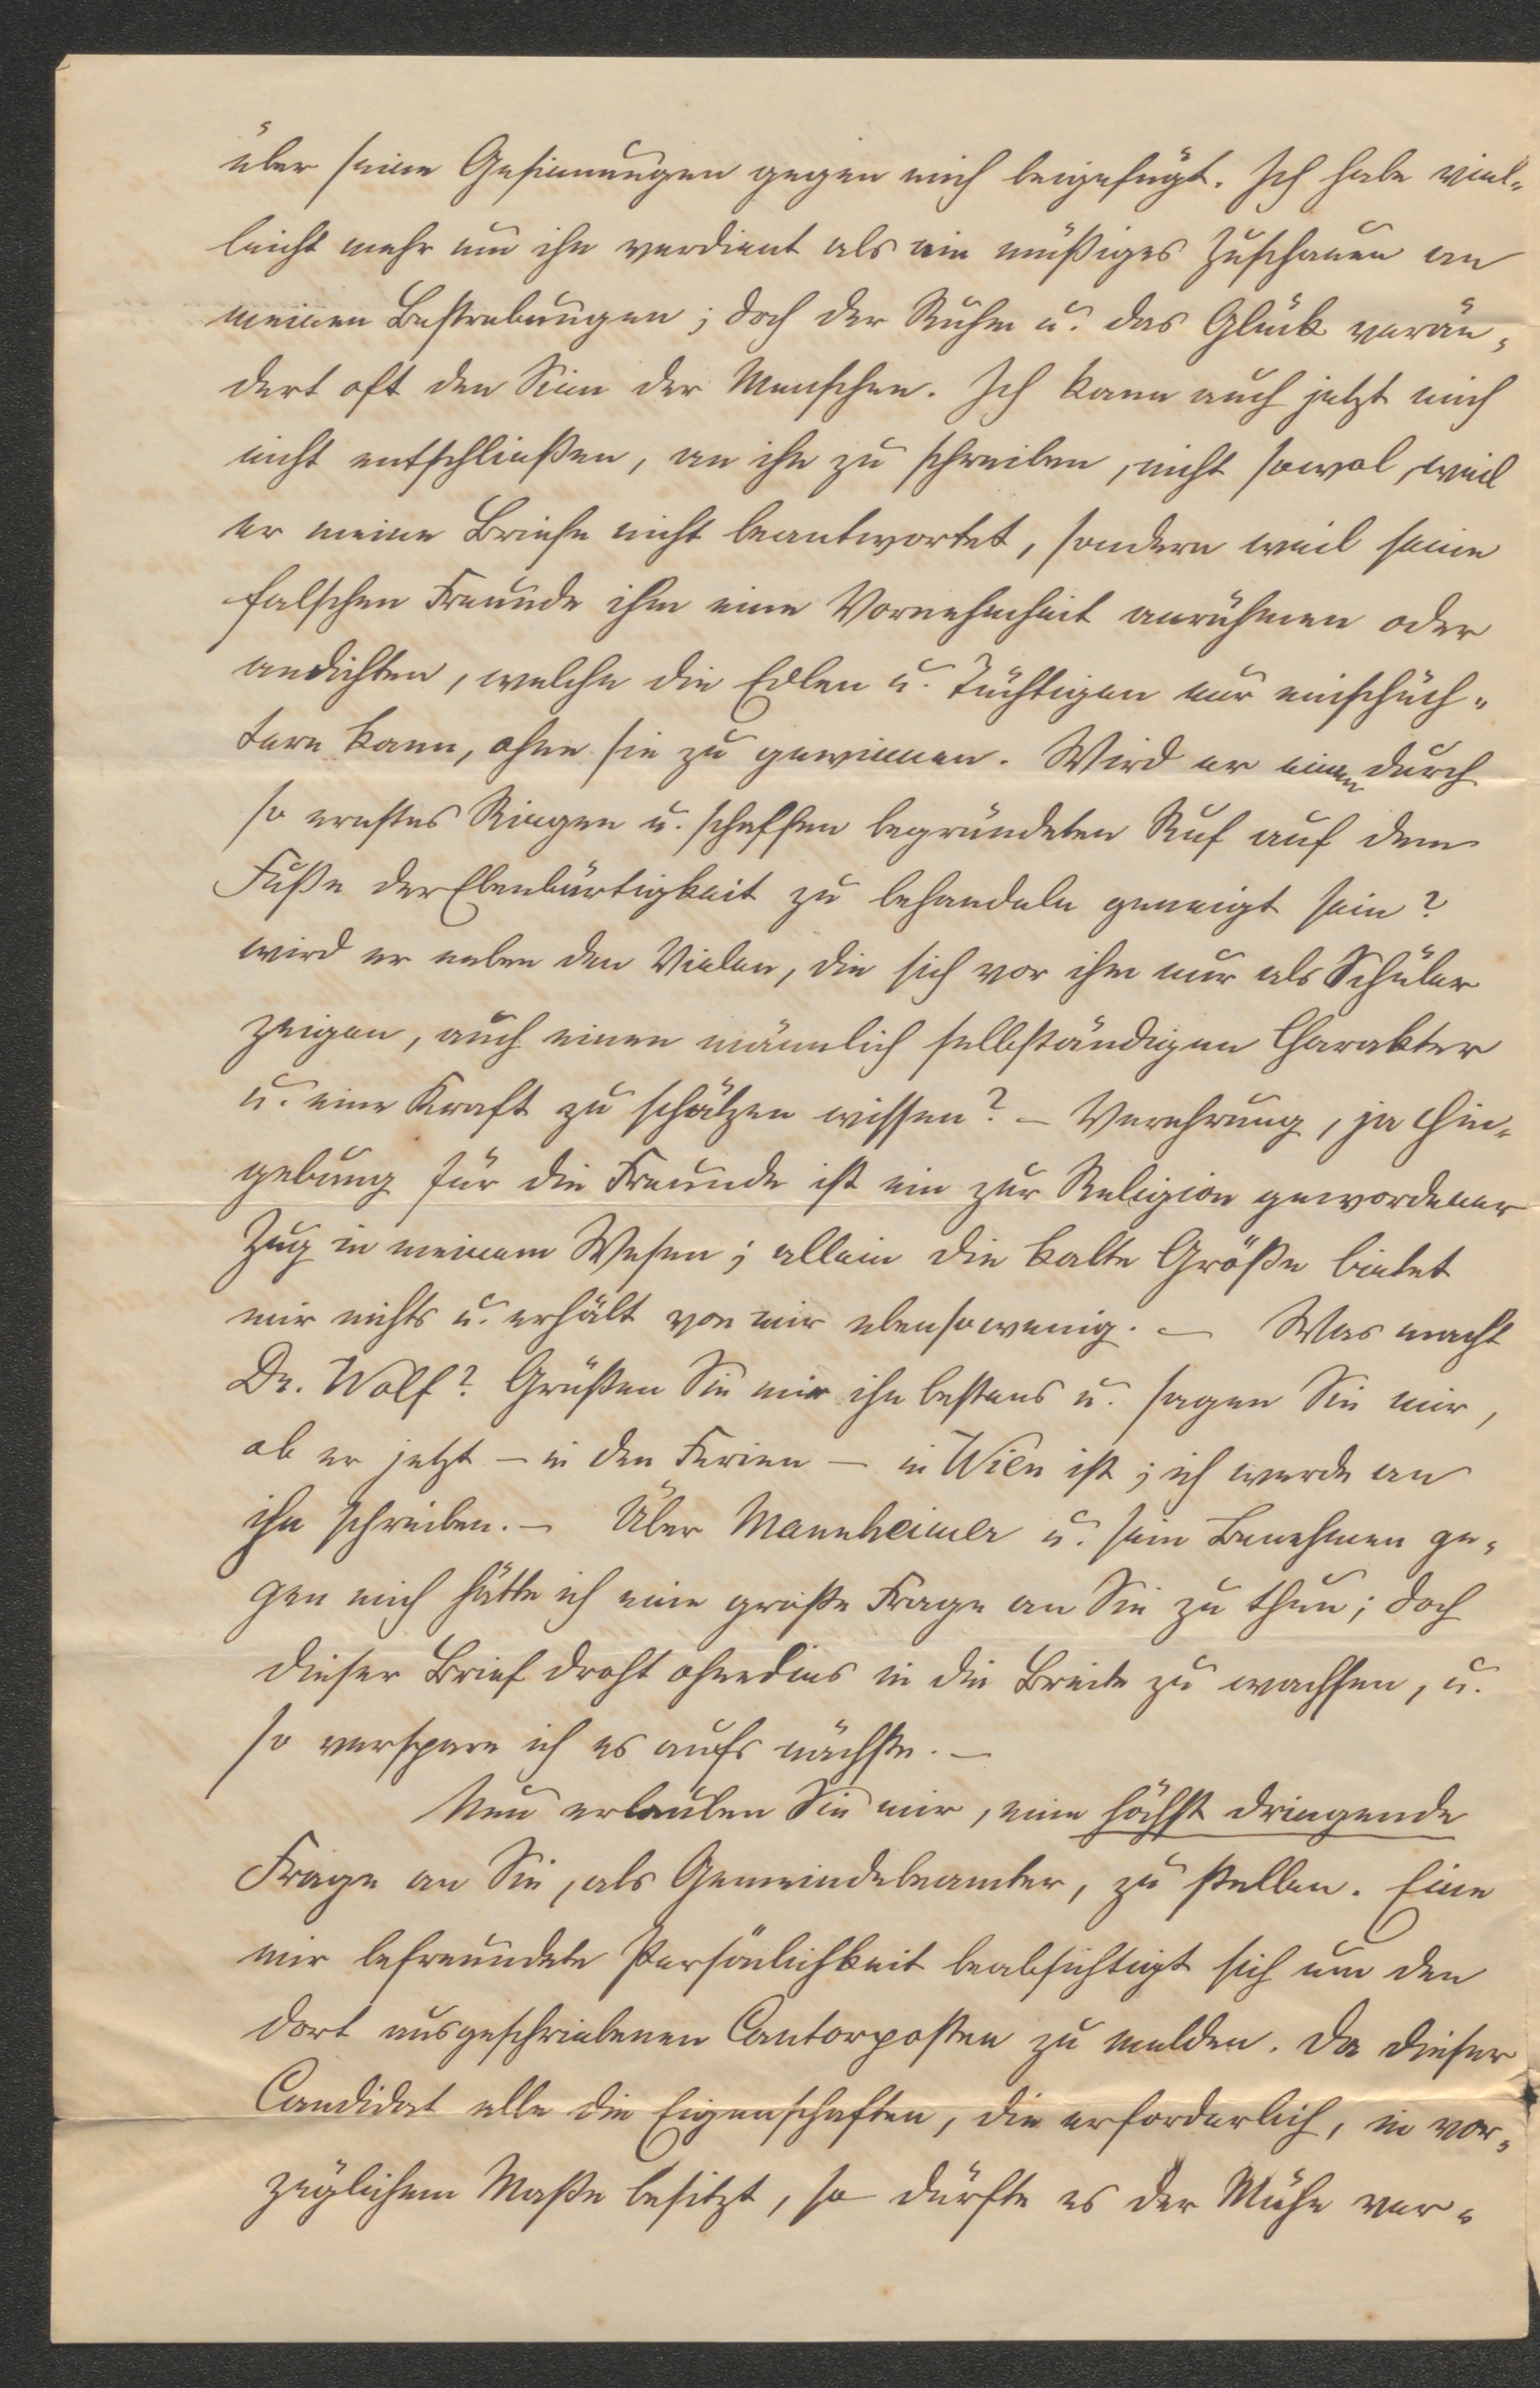 über seine Gesinnungen gegen mich beigefügt. Ich habe viel-
leicht mehr um ihn verdient als ein müßiges Zuschauen an
meinen Bestrebungen; doch der Ruhm u. das Glück verän-
dert oft den Sinn der Menschen. Ich kann auch jetzt mich
nicht entschließen, an ihn zu schreiben, nicht sowol, weil
er meine Briefe nicht beantwortet, sondern weil seine
falschen Freunde ihm eine Vornehmheit anrühmen oder
andichten, welche die Edlen u. Tüchtigen nur einschüch-
tern kann, ohne sie zu gewinnen. Wird er einen durch
so ernstes Ringen u. schaffen begründeten Ruf auf dem
Fuße der Ebenbürtigkeit zu behandeln geneigt sein?
wird er neben den Vielen, die sich vor ihm nur als Schüler
zeigen, auch einen männlich selbständigen Charakter
u. eine Kraft zu schätzen wissen? – Verehrung, ja Hin-
gebung für die Freunde ist ein zur Religion gewordener
Zug in meinem Wesen; allein die kalte Größe bietet
mir nichts u. erhält von mir ebensowenig. – Was macht
Dr. Wolf? Grüßen Sie mir ihn bestens u. sagen Sie mir,
ob er jetzt – in den Ferien – in Wien ist; ich werde an
ihn schreiben. – Über Mannheimer u. sein Benehmen ge-
gen mich hätte ich eine große Frage an Sie zu thun; doch
dieser Brief droht ohnedies in die Breite zu wachsen, u.
so verspare ich es aufs nächste. –
Nun erlauben Sie mir, eine höchst dringende
Frage an Sie, als Gemeindebeamter, zu stellen. Eine
mir befreundete Persönlichkeit beabsichtigt sich um den
dort ausgeschriebenen Cantorposten zu melden. Da dieser
Candidat alle die Eigenschaften, die erforderlich, in vor-
züglichem Maße besitzt, so dürfte es der Mühe ver-